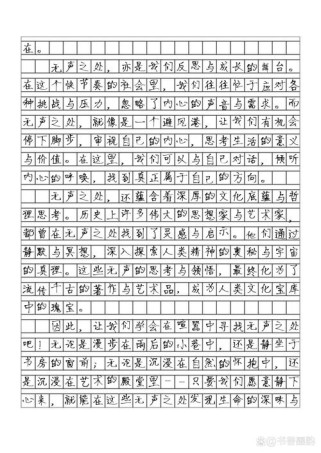 在。
无声之处，亦是我们反思与成长的舞台。
在这个快节奏的社会里，我们往往忙于应对各
种挑战与压力，忽略了内心的声音与需求。而
无声之处，就像是一个避风港，让我们有机会
停下脚步，审视自己的内心，思考生活的意义
与价值。在这里，我们可以与自己对话，倾听
内心的呼唤，找到真正属于自己的方向。
无声之处，还蕴含着深厚的文化底蕴与哲
理思考。历史上许多伟大的思想家与艺术家，
都曾在无声之处找到了灵感与启示。他们通过
静默与冥想，深入探索人类精神的奥秘与宇宙
的真理。这些无声的思考与领悟，最终化为了
流传千古的著作与艺术品，成为人类文化宝库
中的瑰宝。
因此，让我们学会在喧嚣中寻找无声之处
吧！无论是漫步在雨后的小巷中，还是静坐于
书房的窗前；无论是沉浸在自然的怀抱中，还
是沉浸在艺术的殿堂里--只要我们愿意静下
心来，就能在这些无声之处发现生命的深味与